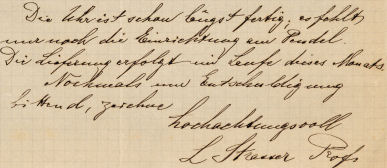 Die Uhr ist schon längst fertig, es fehlt
nur noch die Einrichtung am Pendel.
Die Lieferung erfolgt im Laufe dieses Monats
Nochmals um Entschuldigung
bittend, zeichne
hochachtungsvoll
L Strasser Profs